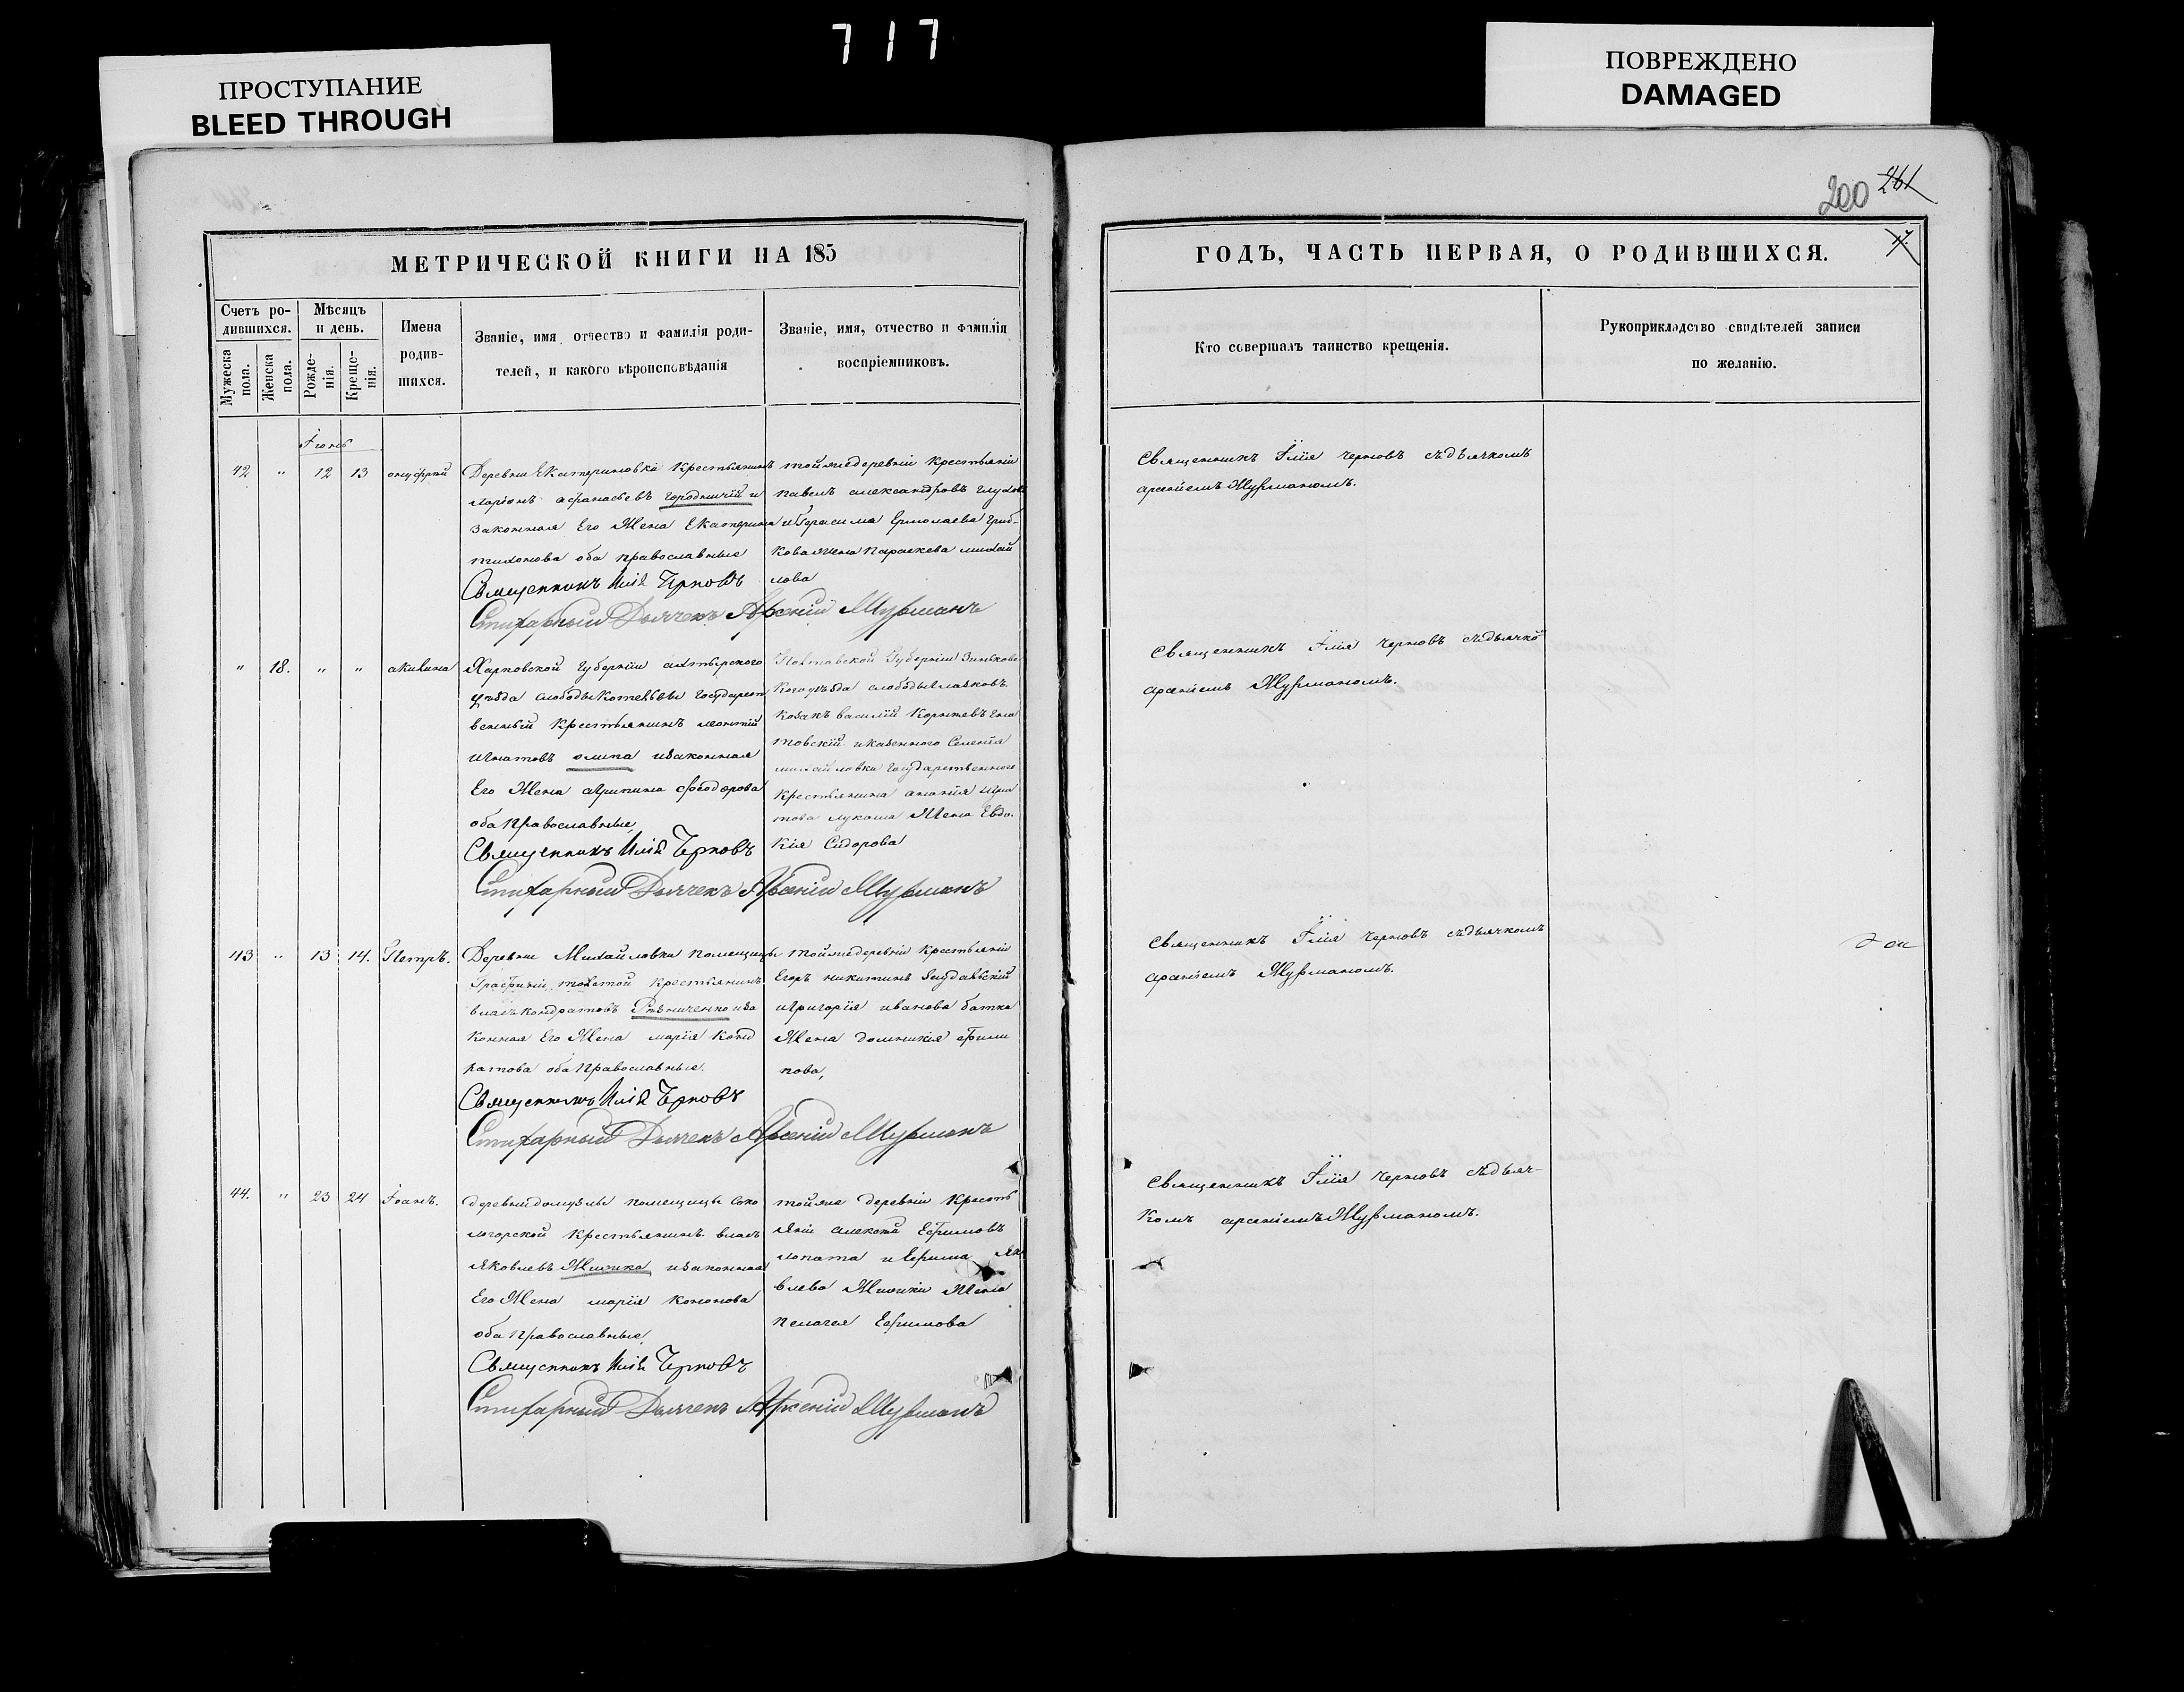 717
ПРОСТУПАНИЕ
BLEED THROUGH
ПОВРЕЖДЕНО
DAMAGED
200 261
МЕТРИЧЕСКОЙ КНИГИ НА 185
Счетъ ро-
дившихся.
Мѣсяцъ
и день.
Мужеска
пола.
Женска
пола.
Рожде-
нія.
Креще-
нія.
Имена
родив-
шихся.
Званіе, имя отчество и фамилія роди-
телей, и какого вѣроисповѣданія
Званіе, имя, отчество и фамилія
воспріемниковъ.
Іюнь
42 " 12 13 онуфрій
Деревни Екатериновки Крестьянинъ
ларіонъ афанасьевъ городничій и
Законная Его Жена Екатерина
тихонова оба православные
Священникъ Илія Черновъ
Стихарный Дьячекъ Арсеній Мурманъ
тойже деревни Крестьянинъ
павелъ александровъ глухов
и Герасима Ермолаева Гриб-
кова жена параскева михай
лова
" 18. " " акилина
Харковской Губерніи ахтырского
уѣзда слободы Котельвы Государст
венный Крестьянинъ леонтій
игнатовъ олипа и законная
Его Жена агрипина феодорова
оба Православные
Священникъ Илія Черновъ
Стихарный Дьячекъ Арсеній Мурманъ
Полтавской Губерніи Зинковс
кого уѣзда слободы
Козакъ василій Корнеевъ
товскій и Казенного Селенія
михайловки Государственного
Крестьянина ананія игна
това лукаша Жена Евдо.
кія Сидорова
43 " 13 14. Петръ.
Деревни Михайловки помещицы
Графини толстой Крестьянинъ
власъ Кондратовъ Рѣзниченко и за
конная Его Жена марія Конд
ратова оба Православные.
Священникъ Илія Черновъ
Стихарный Дьячекъ Арсеній Мурманъ
тойже деревни Крестьяни
Егоръ никитинъ
и Григорія иванова батка
Жена домникія Фили
пова,
44. " 23 24 Іоанъ.
деревни домузлы помещицы Соко
логорской Крестьянинъ власъ
яковлевъ Жижка и законная
Его Жена марія Кононова
оба Православные
Священникъ Илія Черновъ
Стихарный Дьячекъ Арсеній Мурманъ
тойже деревни Крестъ
яни алексей Ефимовъ
лопата и Ефима Яко
влева Жижки Жена
пелагея Ефимова
ГОДЪ, ЧАСТЬ ПЕРВАЯ, О РОДИВШИХСЯ.
17.
Кто совершалъ таинство крещенія.
Рукоприкладство свидѣтелей записи
по желанію.
Священникъ Илія Черновъ съ дьячкомъ
арсеніемъ Мурманомъ.
Священникъ Илія Черновъ съ дьячко
арсеніемъ Мурманомъ.
Священникъ Илія Черновъ съ дьячкомъ
арсеніемъ Мурманомъ.
Священникъ Илія Черновъ съ дьяч-
комъ арсеніемъ Мурманомъ.